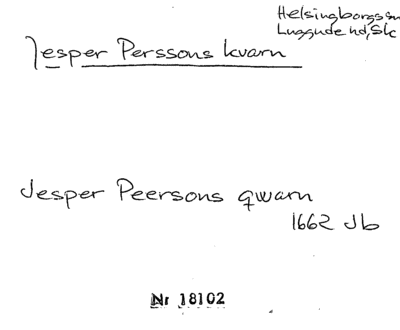 Helsingborgs sn
Luggude hd, Sk
Jesper Perssons kvarn
Jesper Peersons qwarn
1662 Jb
Nr 18102